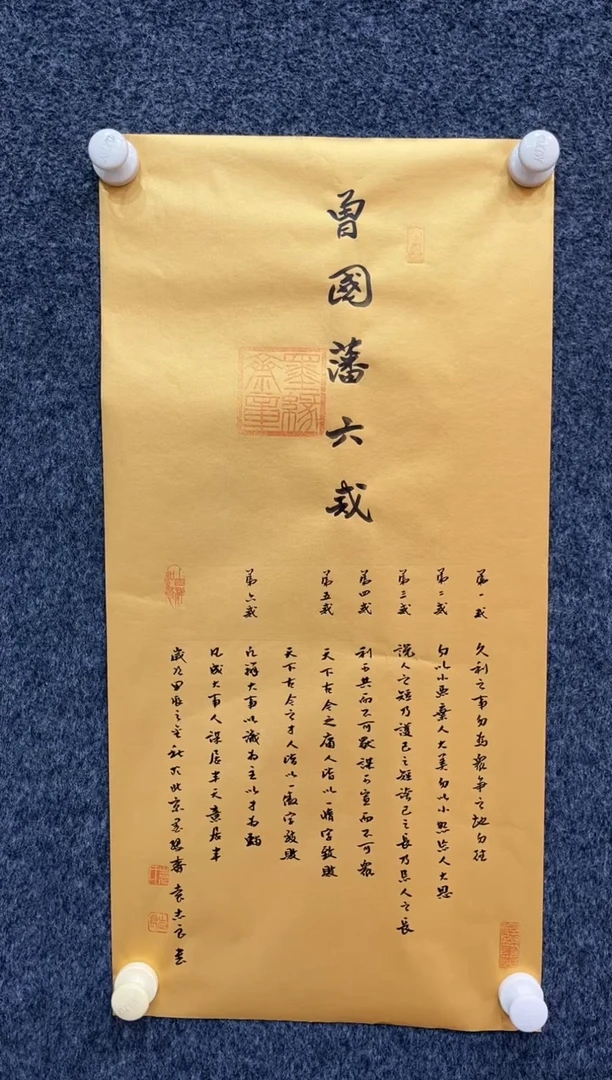 曾國藩六戒
第一戒 久利之事勿為眾爭之地勿往
第二戒 勿以小惡棄人大美勿以小怨忘人大恩
第三戒 說人之短乃護己之短誇己之長乃忌人之長
第四戒 利可共而不可獨謀可寡而不可眾
第五戒 天下古今之庸人皆以一惰字致敗
天下古今之才人皆以一傲字致敗
第六戒 凡辦大事以識為主以才為輔
凡成大事人謀居半天意居半
歲次甲辰之 於北京墨緣齋 書
墨緣齋